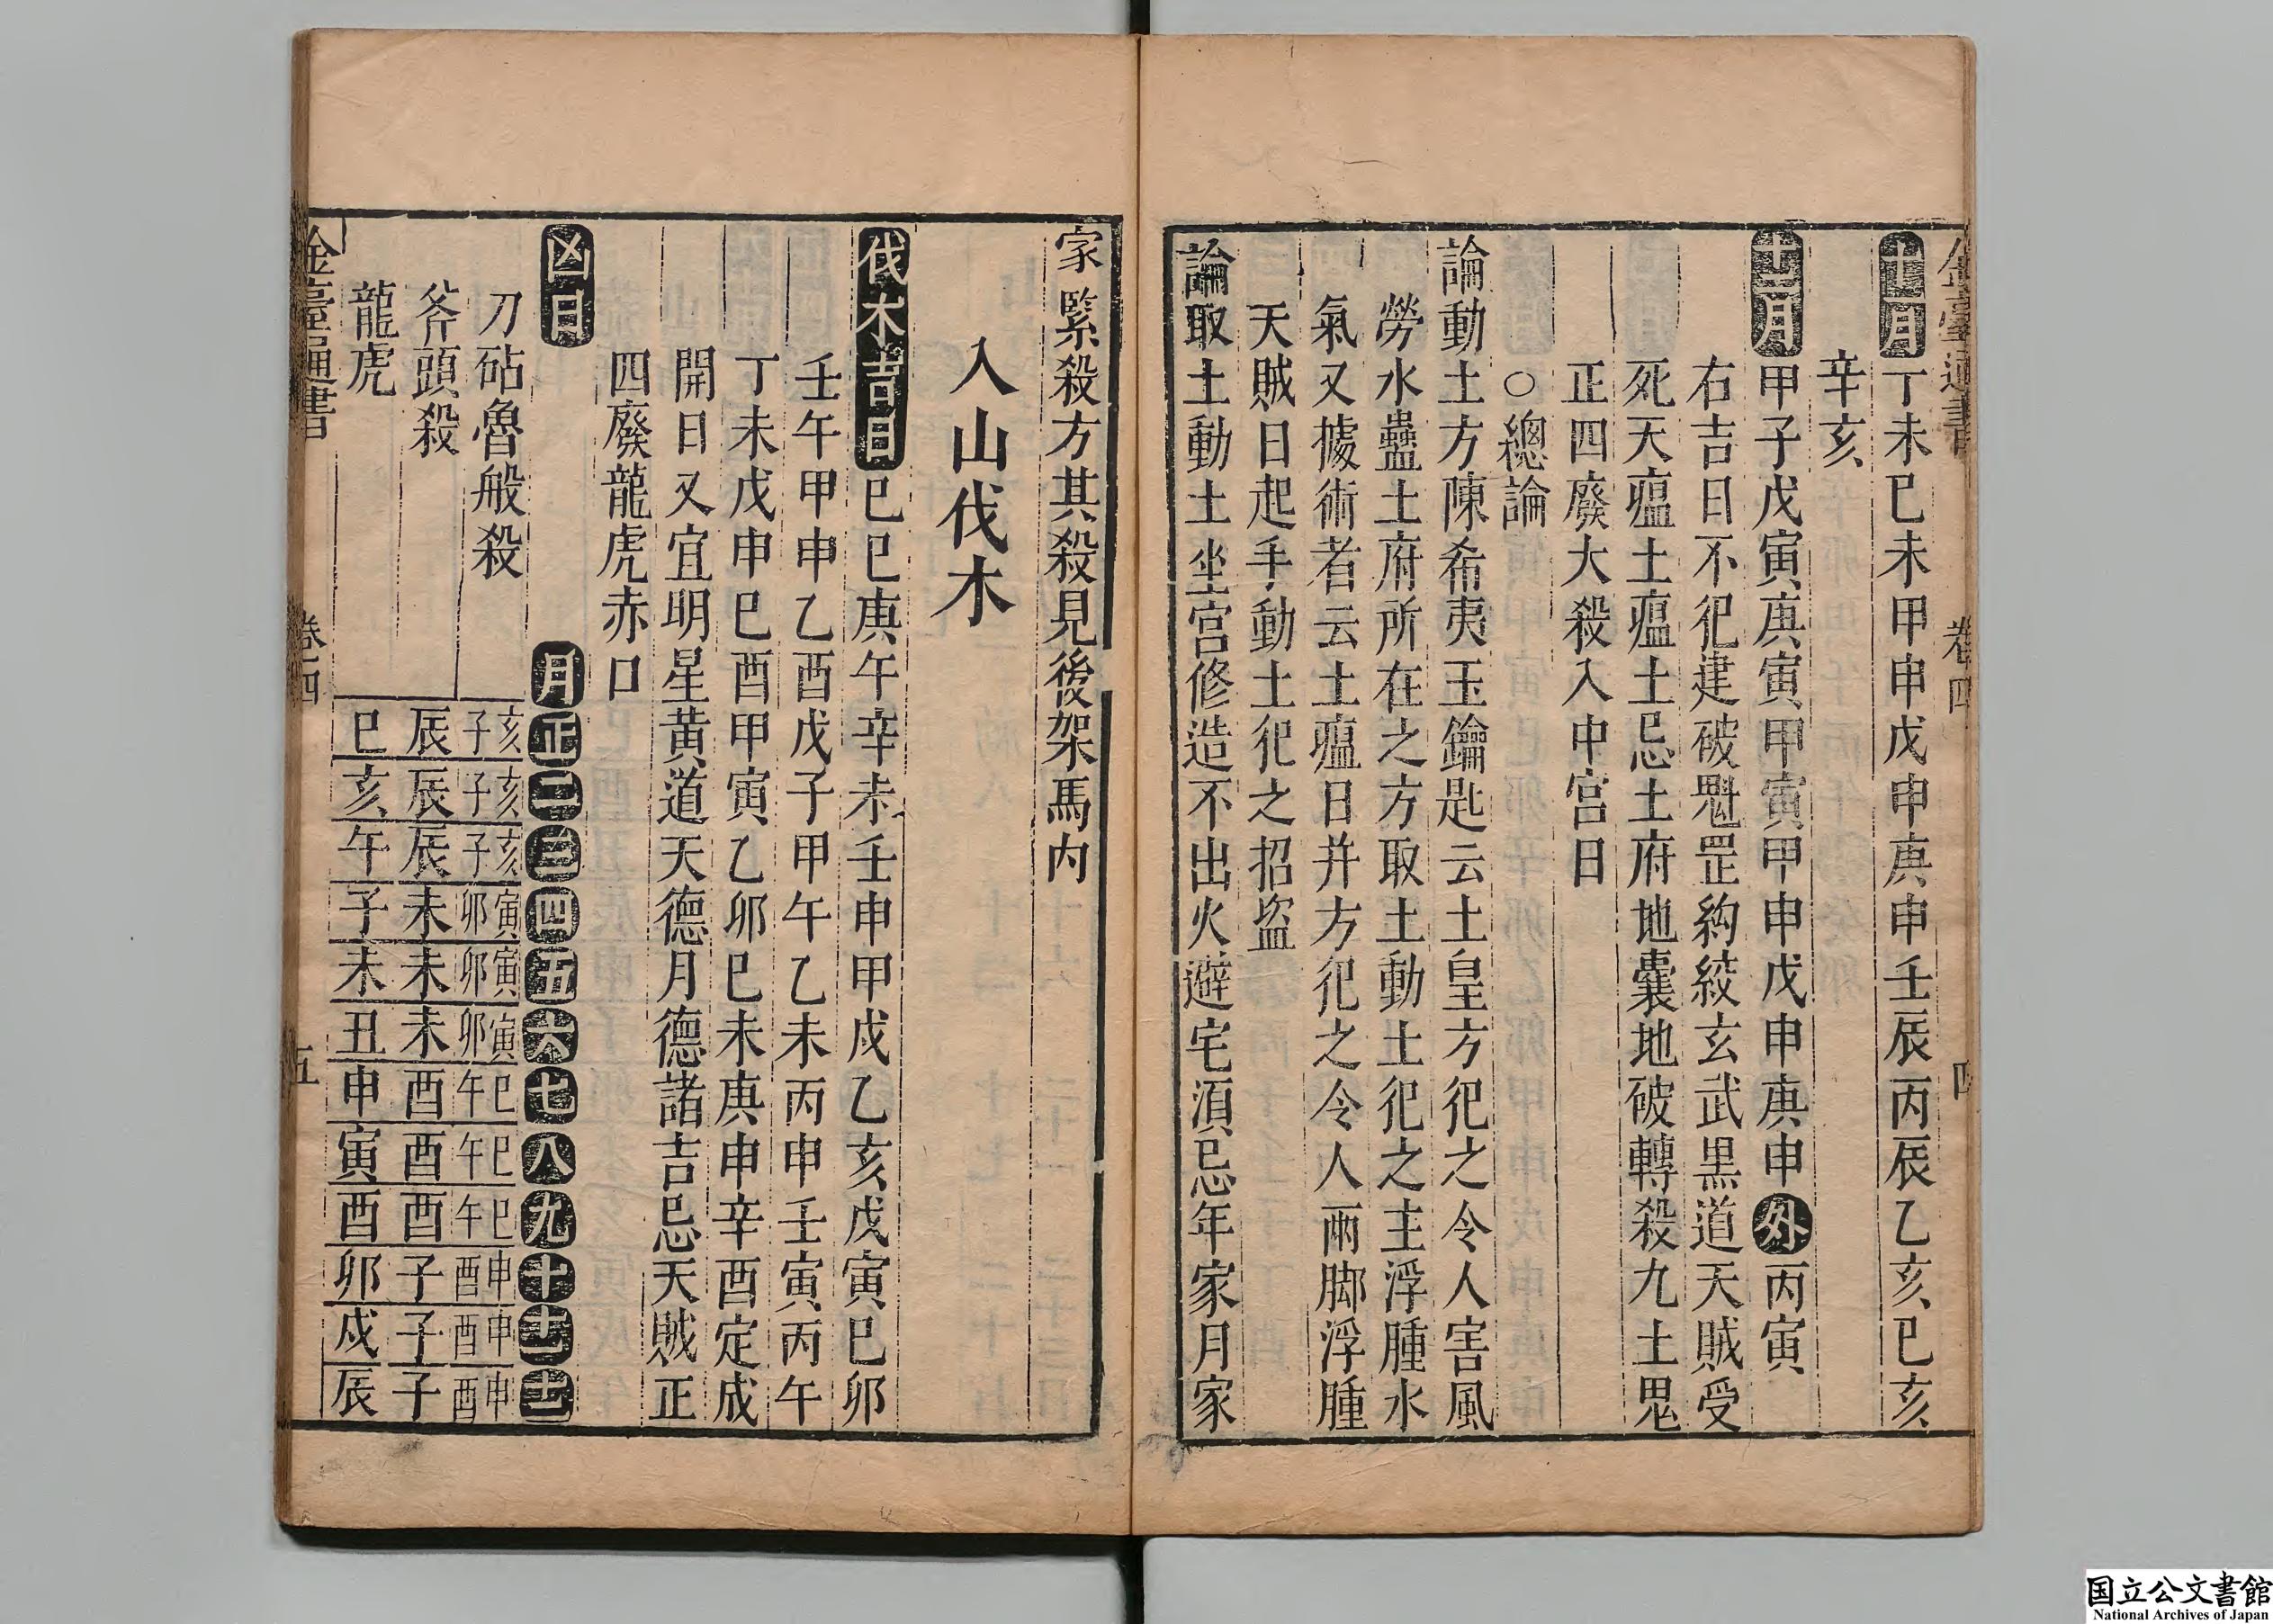 金臺通書　卷四　四
十一月丁未己未甲申戊申庚申壬辰丙辰乙亥己亥
辛亥
十二月甲子戊寅庚寅甲寅甲申戊申庚申外丙寅
右吉日不犯建破魁罡絇絞玄武黑道天賊受
死天瘟土瘟土忌土府地囊地破轉殺九土鬼
正四廢大殺入中宮日
○總論
論動土方陳希夷玉鑰匙云土皇方犯之令人害風
勞水蠱土府所在之方取土動土犯之主浮腫水
氣又據術者云土瘟日并方犯之令人兩脚浮腫
天賊日起手動土犯之招盜
論取土動土坐宮修造不出火避宅湏忌年家月家
家緊殺方其殺見後架馬内
入山伐木
伐木吉日己巳庚午辛未壬申甲戌乙亥戊寅己卯
壬午甲申乙酉戊子甲午乙未丙申壬寅丙午
丁未戊申己酉甲寅乙卯己未庚申辛酉定成
開日又宜明星黃道天德月德諸吉忌天賊正
四廢龍虎赤口
凶日　月正二三四五六七八九十十一十二
刀砧魯般殺　亥子　亥子　亥子　寅卯　寅卯　寅卯　巳午　巳午　巳午　申酉　申酉　申酉
斧頭殺　辰辰辰未未未酉酉酉子子子
龍虎　巳亥午子未丑申寅酉卯戌辰
金臺通書　卷四　五
国立公文書館
National Archives of Japan